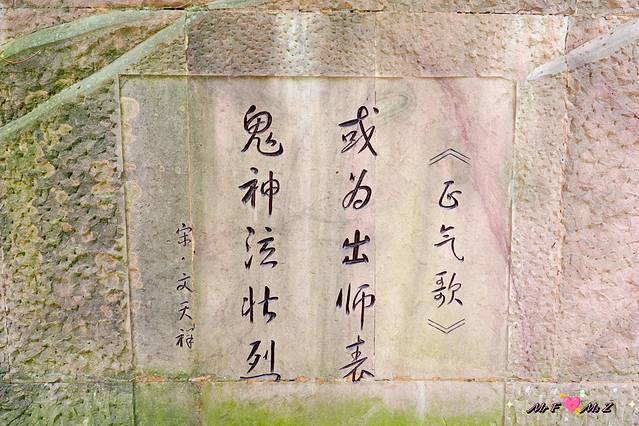 《正气歌》
或为出师表
鬼神泣壮烈
宋·文天祥
Mr F Ms Z